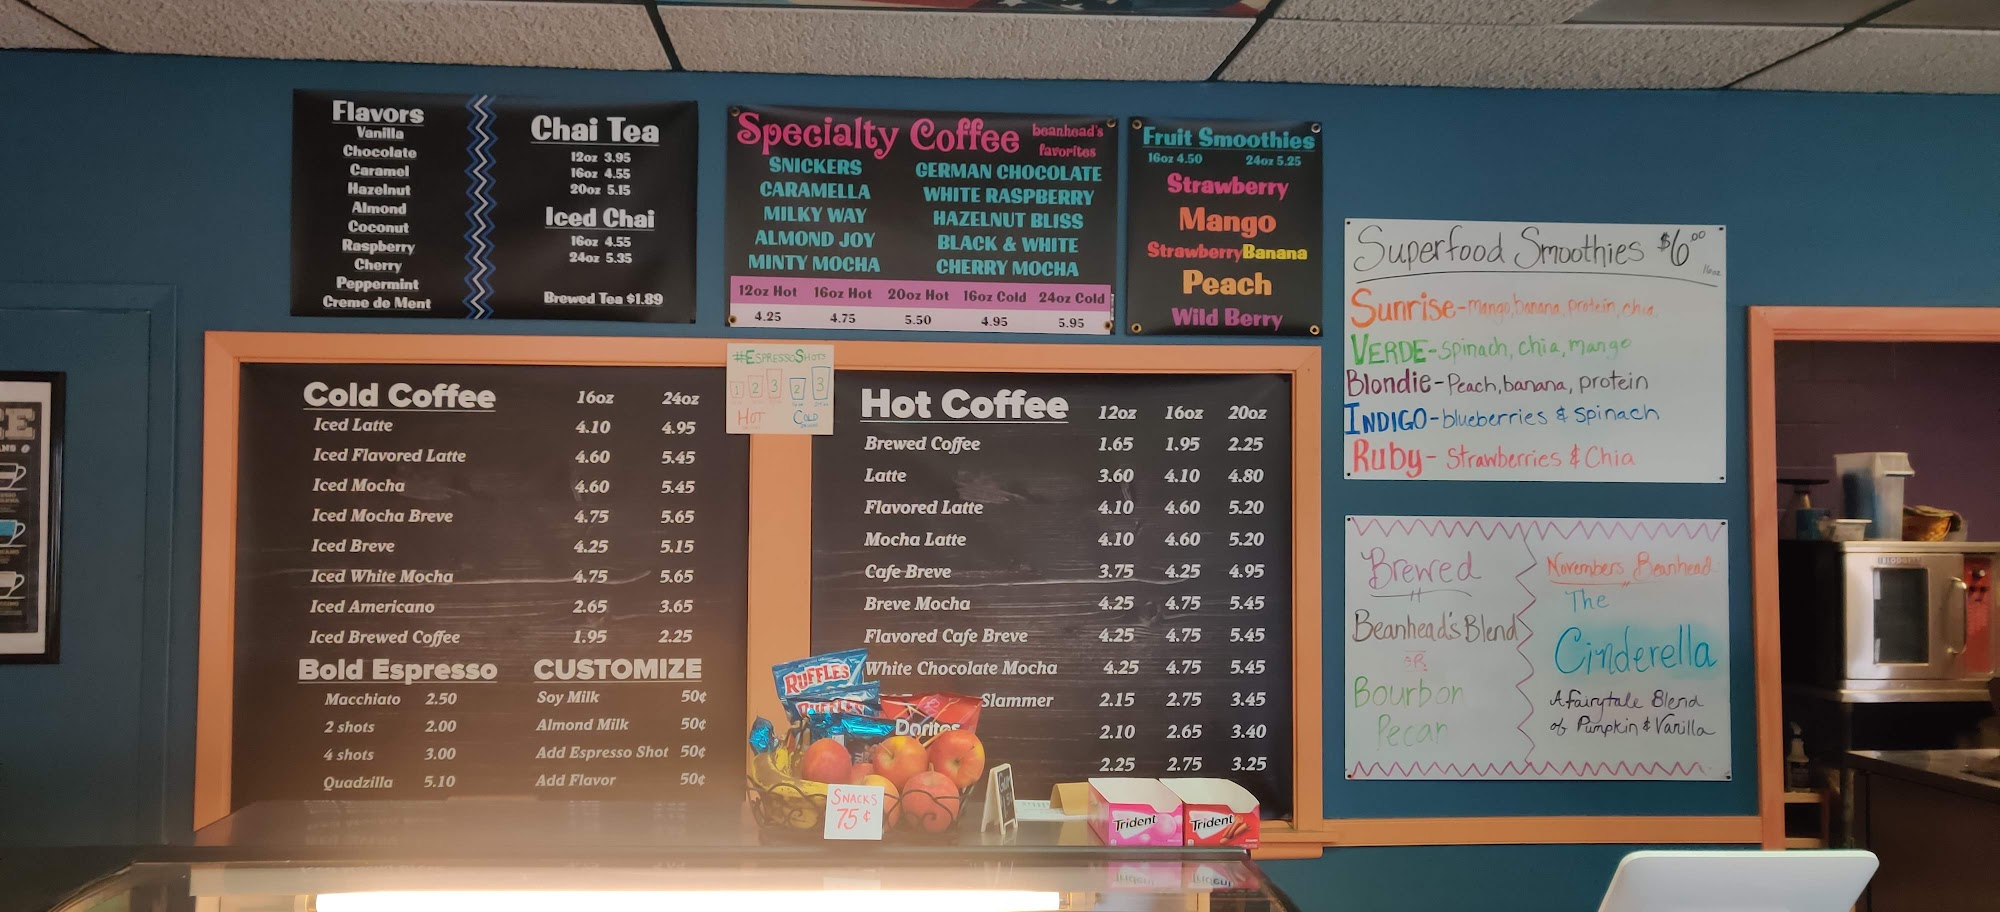 Flavors
Vanilla
Chocolate
Caramel
Hazelnut
Almond
Coconut
Raspberry
Cherry
Peppermint
Creme de Ment
Chai Tea
12oz 3.95
16oz 4.55
20oz 5.15
Iced Chai
16oz 4.55
24oz 5.35
Brewed Tea $1.89
Specialty Coffee beanhead's
favorites
SNICKERS
CARAMELLA
MILKY WAY
ALMOND JOY
MINTY MOCHA
GERMAN CHOCOLATE
WHITE RASPBERRY
HAZELNUT BLISS
BLACK & WHITE
CHERRY MOCHA
12oz Hot 16oz Hot 20oz Hot 16oz Cold 24oz Cold
4.25 4.75 5.50 4.95 5.95
Fruit Smoothies
16oz 4.50 24oz 5.25
Strawberry
Mango
StrawberryBanana
Peach
Wild Berry
Superfood Smoothies $6.00
16oz
Sunrise-mango, banana, protein, chia
VERDE-spinach, chia, mango
Blondie-Peach, banana, protein
INDIGO-blueberries & spinach
Ruby- Strawberries & Chia
#ESPRESSOSHOTS
1 2 3 2 3
HOT COLD
Cold Coffee 16oz 24oz
Iced Latte 4.10 4.95
Iced Flavored Latte 4.60 5.45
Iced Mocha 4.60 5.45
Iced Mocha Breve 4.75 5.65
Iced Breve 4.25 5.15
Iced White Mocha 4.75 5.65
Iced Americano 2.65 3.65
Iced Brewed Coffee 1.95 2.25
Bold Espresso
Macchiato 2.50
2 shots 2.00
4 shots 3.00
Quadzilla 5.10
CUSTOMIZE
Soy Milk 50¢
Almond Milk 50¢
Add Espresso Shot 50¢
Add Flavor 50¢
Hot Coffee 12oz 16oz 20oz
Brewed Coffee 1.65 1.95 2.25
Latte 3.60 4.10 4.80
Flavored Latte 4.10 4.60 5.20
Mocha Latte 4.10 4.60 5.20
Cafe Breve 3.75 4.25 4.95
Breve Mocha 4.25 4.75 5.45
Flavored Cafe Breve 4.25 4.75 5.45
White Chocolate Mocha 4.25 4.75 5.45
Slammer 2.15 2.75 3.45
2.10 2.65 3.40
2.25 2.75 3.25
Brewed
Beanhead's Blend
OR
Bourbon
Pecan
Novembers Beanhead
The
Cinderella
A Fairytale Blend
of Pumpkin & Vanilla
RUFFLES
RUFFLES
Doritos
SNACKS
75¢
Trident
Trident